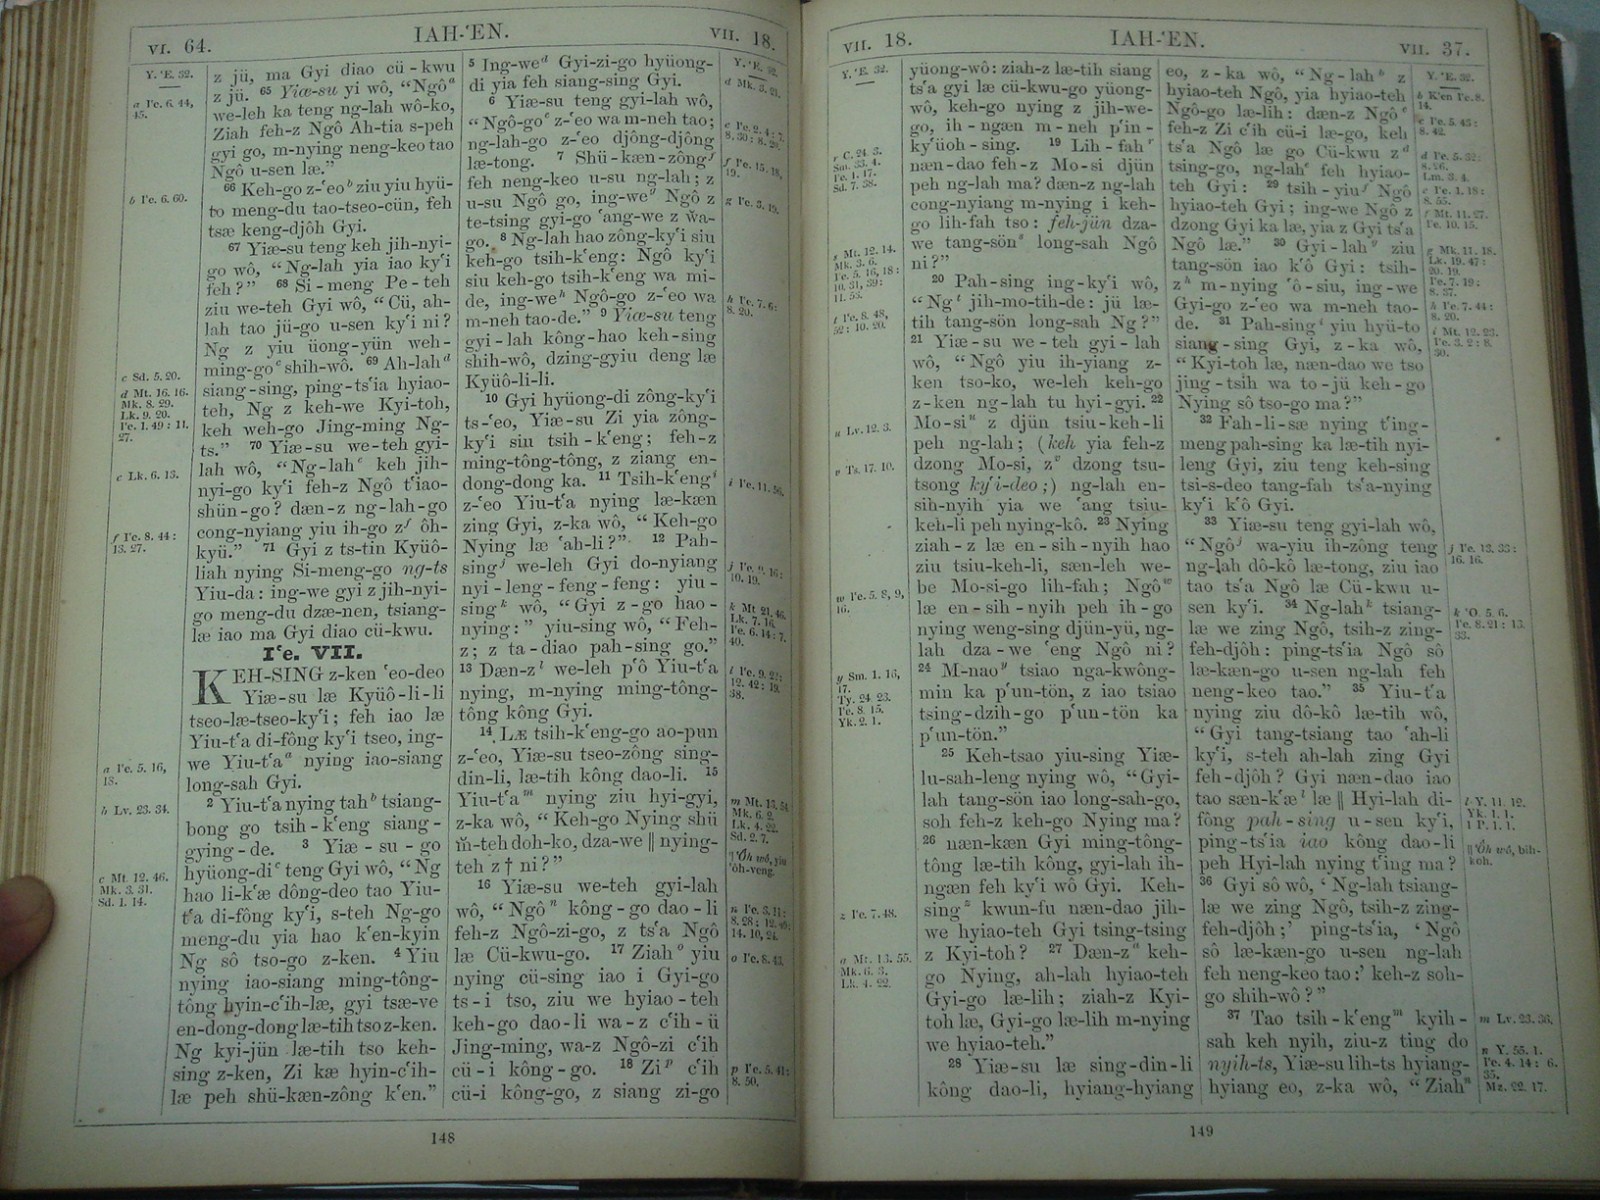 VI. 64.
IAH-'EN.
VII. 18.
Y. 'E. 32.
a I'e. 6. 44,
45.
b I'e. 6. 60.
c Sd. 5. 20.
d Mt. 16. 16.
Mk. 8. 29.
Lk. 9. 20.
I'e. 1. 49 : 11.
27.
e Lk. 6. 13.
f I'e. 8. 44 :
13. 27.
a I'e. 5. 16,
18.
b Lv. 23. 34.
c Mt. 12. 46.
Mk. 3. 31.
Sd. 1. 14.
z jü, ma Gyi diao cü-kwu
z jü. 65 Yiæ-su yi wô, “Ngôa
we-leh ka teng ng-lah wô-ko,
Ziah feh-z Ngô Ah-tia s-peh
gyi go, m-nying neng-keo tao
Ngô u-sen læ.”
66 Keh-go z-‘eob ziu yiu hyü-
to meng-du tao-tseo-cün, feh
tsæ keng-djôh Gyi.
67 Yiæ-su teng keh jih-nyi-
go wô, “Ng-lah yia iao ky‘i
feh?” 68 Si-meng Pe-teh
ziu we-teh Gyi wô, “Cü, ah-
lah tao jü-go u-sen ky‘i ni?
Ng z yiu üong-yün weh-
ming-goc shih-wô. 69 Ah-lahd
siang-sing, ping-ts‘ia hyiao-
teh, Ng z keh-we Kyi-toh,
keh weh-go Jing-ming Ng-
ts.” 70 Yiæ-su we-teh gyi-
lah wô, “Ng-lahe keh jih-
nyi-go ky‘i feh-z Ngô t‘iao-
shün-go? dæn-z ng-lah-go
cong-nyiang yiu ih-go zf ôh-
kyü.” 71 Gyi z ts-tin Kyüô-
liah nying Si-meng-go ng-ts
Yiu-da: ing-we gyi z jih-nyi-
go meng-du dzæ-nen, tsiang-
læ iao ma Gyi diao cü-kwu.
I‘e. VII.
KEH-SING z-ken ‘eo-deo
Yiæ-su læ Kyüô-li-li
tseo-læ-tseo-ky‘i; feh iao læ
Yiu-t‘a di-fông ky‘i tseo, ing-
we Yiu-t‘aa nying iao-siang
long-sah Gyi.
2 Yiu-t‘a nying tahb tsiang-
bong go tsih-k‘eng siang-
gying-de. 3 Yiæ-su-go
hyüong-dic teng Gyi wô, “Ng
hao li-k‘æ dông-deo tao Yiu-
t‘a di-fông ky‘i, s-teh Ng-go
meng-du yia hao k‘en-kyin
Ng sô tso-go z-ken. 4 Yiu
nying iao-siang ming-tông-
tông hyin-c‘ih-læ, gyi tsæ-ve
en-dong-dong læ-tih tso z-ken.
Ng kyi-jün læ-tih tso keh-
sing z-ken, Zi kæ hyin-c‘ih-
læ peh shü-kæn-zông k‘en.”
5 Ing-wed Gyi-zi-go hyüong-
di yia feh siang-sing Gyi.
6 Yiæ-su teng gyi-lah wô,
“Ngô-goe z-‘eo wa m-neh tao;
ng-lah-go z-‘eo djông-djông
læ-tong. 7 Shü-kæn-zôngf
feh neng-keo u-su ng-lah; z
u-su Ngô go, ing-weg Ngô z
te-tsing gyi-go ‘ang-we z wa-
go. 8 Ng-lah hao zông-ky‘i siu
keh-go tsih-k‘eng: Ngô ky‘i
siu keh-go tsih-k‘eng wa mi-
de, ing-weh Ngô-go z-‘eo wa
m-neh tao-de.” 9 Yiæ-su teng
gyi-lah kông-hao keh-sing
shih-wô, dzing-gyiu deng læ
Kyüô-li-li.
10 Gyi hyüong-di zông-ky‘i
ts-‘eo, Yiæ-su Zi yia zông-
ky‘i siu tsih-k‘eng; feh-z
ming-tông-tông, z ziang en-
dong-dong ka. 11 Tsih-k‘engi
z-‘eo Yiu-t‘a nying læ-kæn
zing Gyi, z-ka wô, “Keh-go
Nying læ ‘ah-li?” 12 Pah-
singj we-leh Gyi do-nyiang
nyi-leng-feng-feng: yiu-
singk wô, “Gyi z-go hao-
nying:” yiu-sing wô, “Feh-
z; z ta-diao pah-sing go.”
13 Dæn-zl we-leh p‘ô Yiu-t‘a
nying, m-nying ming-tông-
tông kông Gyi.
14 LÆ tsih-k‘eng-go ao-pun
z-‘eo, Yiæ-su tseo-zông sing-
din-li, læ-tih kông dao-li. 15
Yiu-t‘am nying ziu hyi-gyi,
z-ka wô, “Keh-go Nying shü
m̆-teh doh-ko, dza-we ‖ nying-
teh z † ni?”
16 Yiæ-su we-teh gyi-lah
wô, “Ngôn kông-go dao-li
feh-z Ngô-zi-go, z ts‘a Ngô
læ Cü-kwu-go. 17 Ziaho yiu
nying cü-sing iao i Gyi-go
ts-i tso, ziu we hyiao-teh
keh-go dao-li wa-z c‘ih-ü
Jing-ming, wa-z Ngô-zi c‘ih
cü-i kông-go. 18 Zip c‘ih
cü-i kông-go, z siang zi-go
d Mk. 3. 21.
g I'e. 3. 19.
h I'e. 7. 6 :
8. 20.
i I'e. 11. 56.
k Mt 21. 46.
Lk. 7. 16.
I'e. 6. 14 : 7.
40.
m Mt. 13. 54.
Mk. 6. 2.
Lk. 4. 22.
Sd. 2. 7.
o I'e. 8. 43.
p I'e. 5. 41 :
8. 50.
148
VII. 18.
IAH-'EN.
VII. 37.
Y. 'E. 32.
r C. 24. 3.
Sm. 33. 4.
I'e. 1. 17.
Sd. 7. 38.
s Mt. 12. 14.
Mk. 3. 6.
I'e. 5. 16, 18 :
10. 31, 39 :
11. 53.
t I'e. 8. 48,
52 : 10. 20.
u Lv. 12. 3.
v Ts. 17. 10.
w I'e. 5. 8, 9,
16.
y Sm. 1. 16,
17.
Ty. 24. 23.
I'e. 8. 15.
Yk. 2. 1.
z I'e. 7. 48.
a Mt. 13. 55.
Mk. 6. 3.
Lk. 4. 22.
yüong-wô: ziah-z læ-tih siang
ts‘a gyi læ cü-kwu-go yüong-
wô, keh-go nying z jih-we-
go, ih-ngæn m-neh p‘in-
ky‘üoh-sing. 19 Lih-fahr
næn-dao feh-z Mo-si djün
peh ng-lah ma? dæn-z ng-lah
cong-nyiang m-nying i keh-
go lih-fah tso: feh-jün dza-
we tang-söns long-sah Ngô
ni?”
20 Pah-sing ing-ky‘i wô,
“Ngt jih-mo-tih-de: jü læ-
tih tang-sön long-sah Ng?”
21 Yiæ-su we-teh gyi-lah
wô, “Ngô yiu ih-yiang z-
ken tso-ko, we-leh keh-go
z-ken ng-lah tu hyi-gyi. 22
Mo-siu z djün tsiu-keh-li
peh ng-lah; (keh yia feh-z
dzong Mo-si, zv dzong tsu-
tsong ky‘i-deo;) ng-lah en-
sih-nyih yia we ‘ang tsiu-
keh-li peh nying-kô. 23 Nying
ziah-z læ en-sih-nyih hao
ziu tsiu-keh-li, sæn-leh we-
be Mo-si-go lih-fah; Ngôw
læ en-sih-nyih peh ih-go
nying weng-sing djün-yü, ng-
lah dza-we ‘eng Ngô ni?
24 M-naoy tsiao nga-kwông-
min ka p‘un-tön, z iao tsiao
tsing-dzih-go p‘un-tön ka
p‘un-tön.”
25 Keh-tsao yiu-sing Yiæ-
lu-sah-leng nying wô, “Gyi-
lah tang-sön iao long-sah-go,
soh feh-z keh-go Nying ma?
26 næn-kæn Gyi ming-tông-
tông læ-tih kông, gyi-lah ih-
ngæn feh ky‘i wô Gyi. Keh-
singz kwun-fu næn-dao jih-
we hyiao-teh Gyi tsing-tsing
z Kyi-toh? 27 Dæn-za keh-
go Nying, ah-lah hyiao-teh
Gyi-go læ-lih; ziah-z Kyi-
toh læ, Gyi-go læ-lih m-nying
we hyiao-teh.”
28 Yiæ-su læ sing-din-li
kông dao-li, hyiang-hyiang
eo, z-ka wô, “Ng-lahb z
hyiao-teh Ngô, yia hyiao-teh
Ngô-go læ-lih: dæn-z Ngôc
feh-z Zi c‘ih cü-i læ-go, keh
ts‘a Ngô læ go Cü-kwu zd
tsing-go, ng-lahe feh hyiao-
teh Gyi: 29 tsih-yiuf Ngô
hyiao-teh Gyi; ing-we Ngô z
dzong Gyi ka læ, yia z Gyi ts‘a
Ngô læ.” 30 Gyi-lahg ziu
tang-sön iao k‘ô Gyi: tsih-
zh m-nying ‘ô-siu, ing-we
Gyi-go z-‘eo wa m-neh tao-
de. 31 Pah-singi yiu hyü-to
siang-sing Gyi, z-ka wô,
“Kyi-toh læ, næn-dao we tso
jing-tsih wa to-jü keh-go
Nying sô tso-go ma?”
32 Fah-li-sæ nying t‘ing-
meng pah-sing ka læ-tih nyi-
leng Gyi, ziu teng keh-sing
tsi-s-deo tang-fah ts‘a-nying
ky‘i k‘ô Gyi.
33 Yiæ-su teng gyi-lah wô,
“Ngôj wa-yiu ih-zông teng
ng-lah dô-kô læ-tong, ziu iao
tao ts‘a Ngô læ Cü-kwu u-
sen ky‘i. 34 Ng-lahk tsiang-
læ we zing Ngô, tsih-z zing-
feh-djôh: ping-ts‘ia Ngô sô
læ-kæn-go u-sen ng-lah feh
neng-keo tao.” 35 Yiu-t‘a
nying ziu dô-kô læ-tih wô,
“Gyi tang-tsiang tao ‘ah-li
ky‘i, s-teh ah-lah zing Gyi
feh-djôh? Gyi næn-dao iao
tao sæn-k‘æl læ ‖ Hyi-lah di-
fông pah-sing u-sen ky‘i,
ping-ts‘ia iao kông dao-li
peh Hyi-lah nying t‘ing ma?
36 Gyi sô wô, ‘Ng-lah tsiang-
læ we zing Ngô, tsih-z zing-
feh-djôh;’ ping-ts‘ia, ‘Ngô
sô læ-kæn-go u-sen ng-lah
feh neng-keo tao:’ keh-z soh-
go shih-wô?”
37 Tao tsih-k‘engm kyih-
sah keh nyih, ziu-z ting do
nyih-ts, Yiæ-su lih-ts hyiang-
hyiang eo, z-ka wô, “Ziahn
Y. 'E. 32.
b K'en I'e. 8.
14.
c I'e. 5. 43 :
8. 42.
d I'e. 5. 32 :
8. 26.
Lm. 3. 4.
e I'e. 1. 18 :
8. 55.
f Mt. 11. 27.
I'e. 10. 15.
g Mk. 11. 18.
Lk. 19. 47 :
20. 19.
I'e. 7. 19 :
8. 37.
h I'e. 7. 44 :
8. 20.
i Mt. 12. 23.
I'e. 3. 2 : 8.
30.
j I'e. 13. 33 :
16. 16.
k 'O. 5. 6.
I'e. 8. 21 : 13.
33.
l Y. 11. 12.
Yk. 1. 1.
1 P. 1. 1.
‖ 'Ôh wô, bih-
koh.
m Lv. 23. 36.
n Y. 55. 1.
I'e. 4. 14 : 6.
35.
Mz. 22. 17.
149